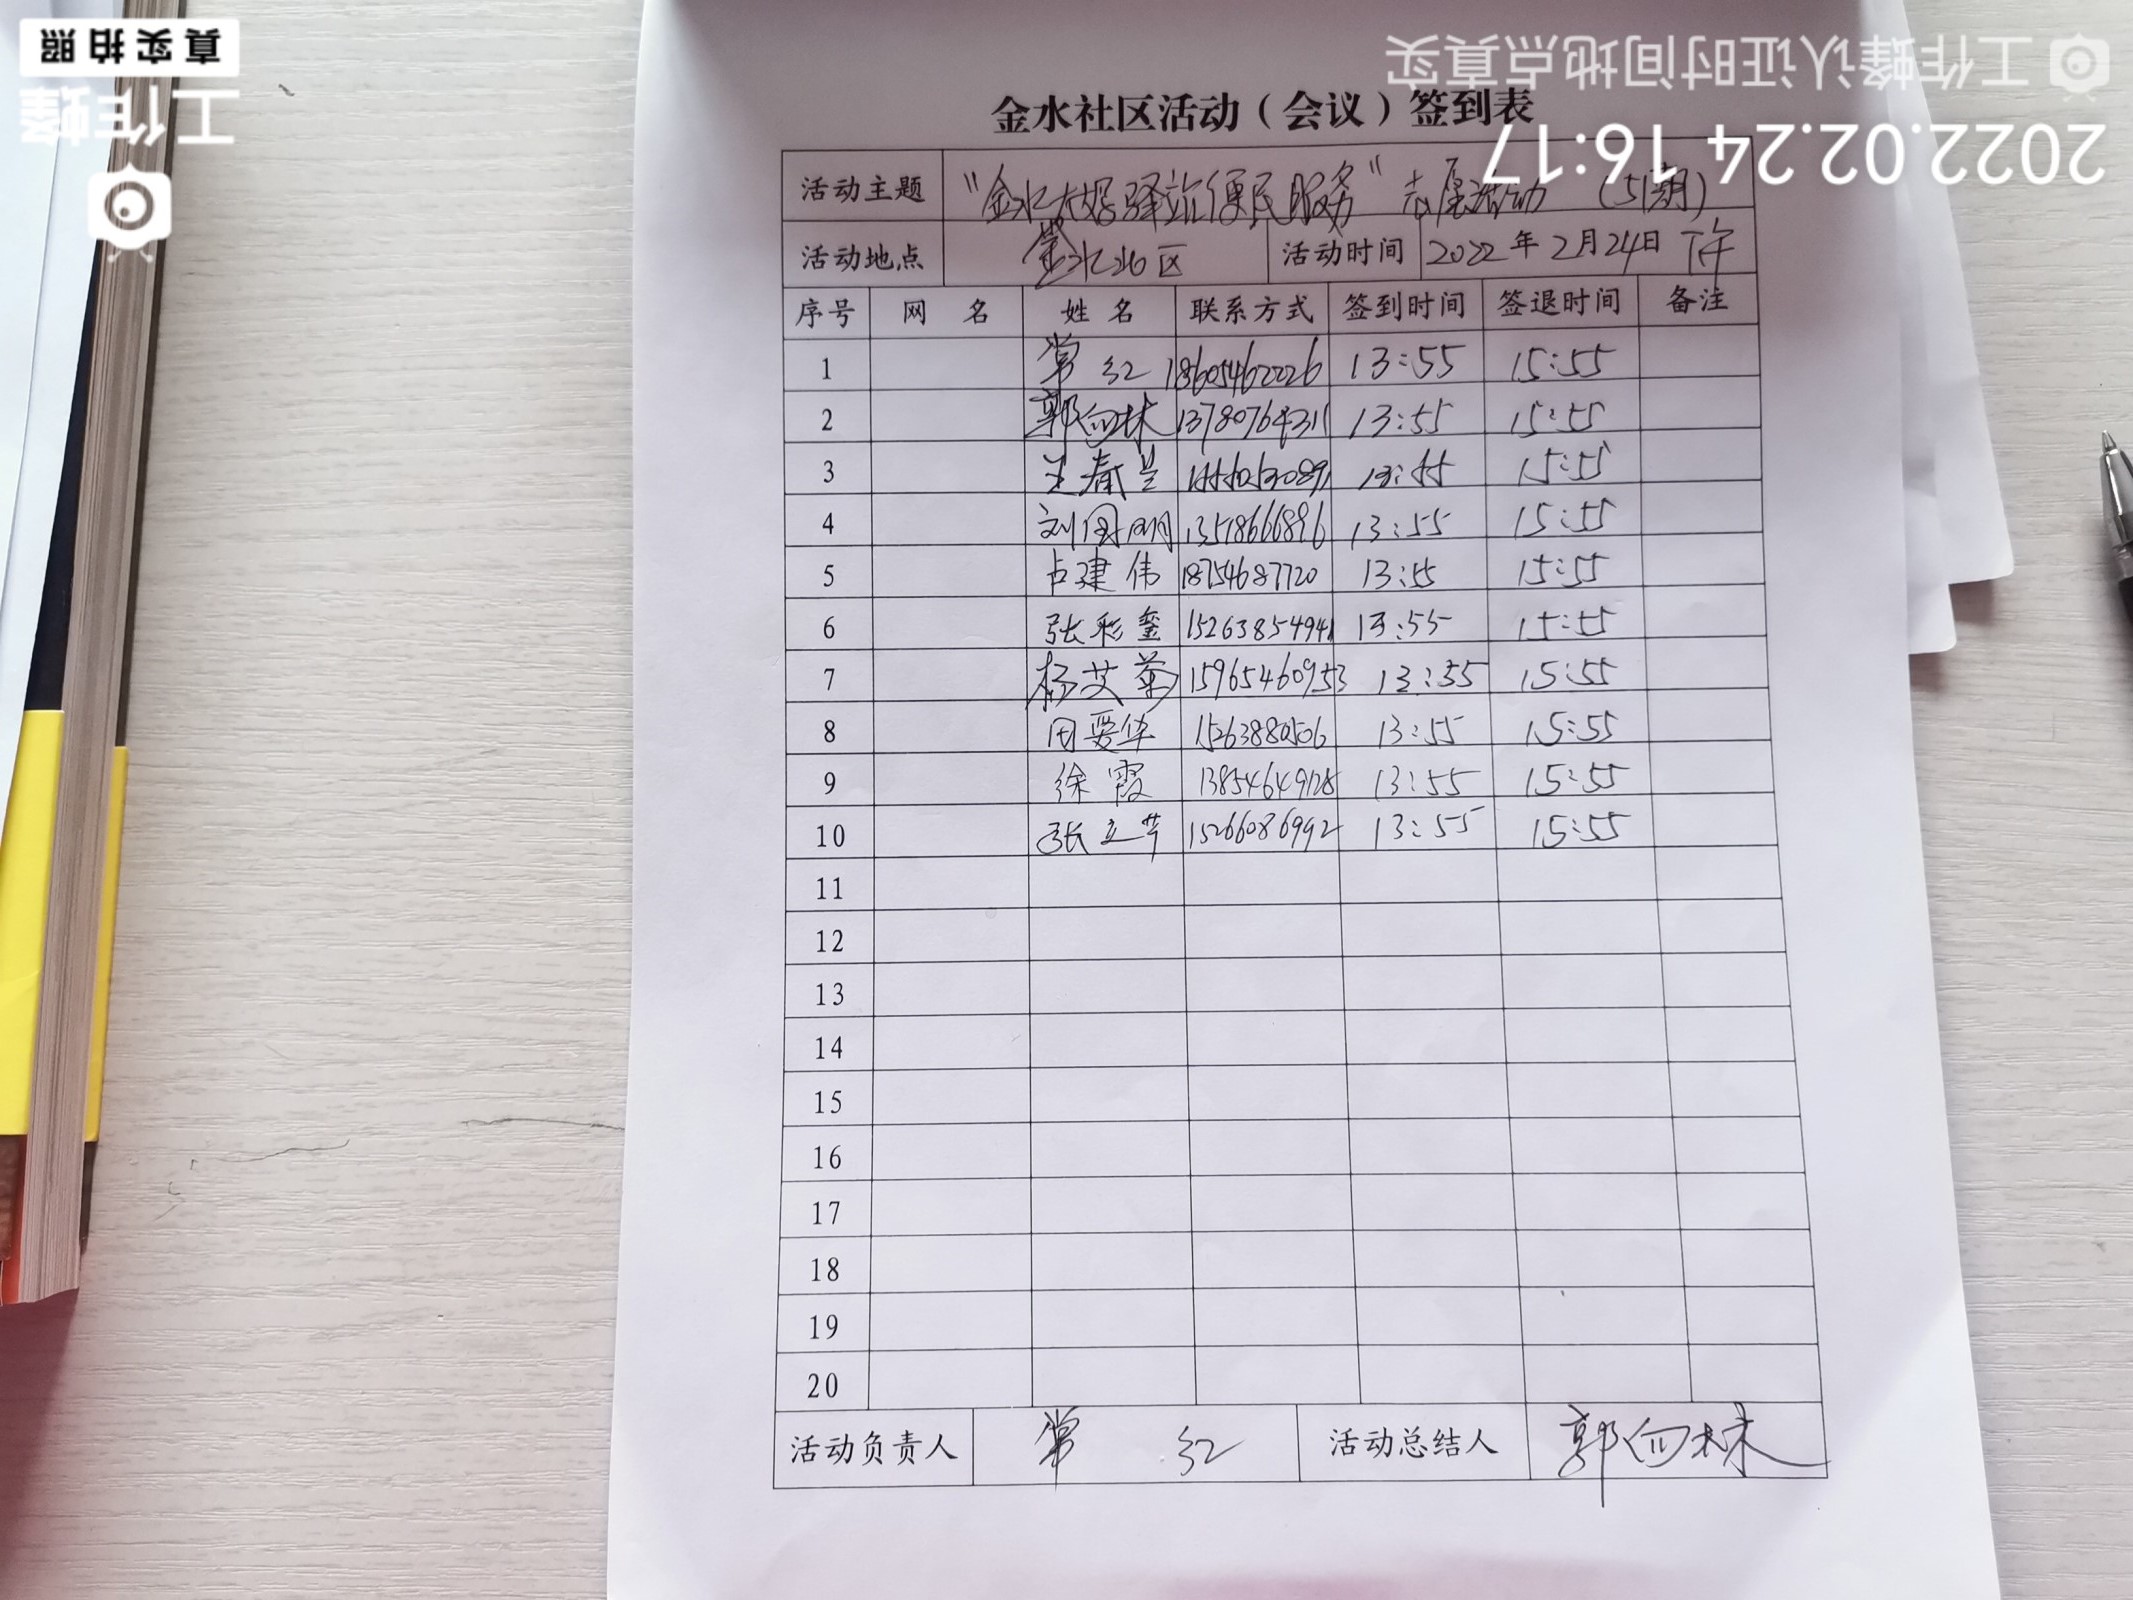 真实拍照
工作蜂
工作蜂认证时间地点真实
2022.02.24 16:17
金水社区活动（会议）签到表
活动主题 "金水大嫂驿站便民服务" 志愿活动 （51期）
活动地点 金水北区 活动时间 2022年2月24日 下午
序号 网名 姓名 联系方式 签到时间 签退时间 备注
1 常红 18605462226 13:55 15:55
2 郭向林 13780764311 13:55 15:55
3 王春兰 13:55 15:55
4 刘国明 13518666896 13:55 15:55
5 占建伟 18754687720 13:55 15:55
6 张彩 15263854941 13:55 15:55
7 杨艾菊 15965460953 13:55 15:55
8 田爱华 15263880506 13:55 15:55
9 徐霞 13854649128 13:55 15:55
10 张立芹 15266086992 13:55 15:55
11
12
13
14
15
16
17
18
19
20
活动负责人 常红 活动总结人 郭向林